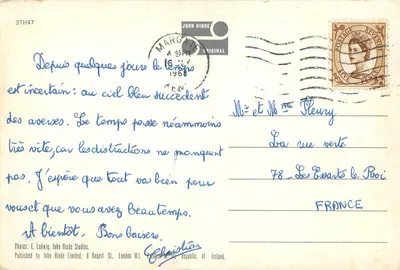 3TH47
JOHN HINDE
ORIGINAL
MARGATE
1968
Depuis quelques jours le temps
est incertain : au ciel bleu succèdent
des averses. Le temps passe néanmoins
très vite, car les distractions ne manquent
pas. J'espère que tout va bien pour
vous et que vous avez beau temps.
A bientôt. Bons baisers.
Christian
Mr et Mme Fleury
La rue verte
78 - Les Essarts le Roi
FRANCE
Photos: E. Ludwig, John Hinde Studios.
Published by John Hinde Limited, 8 Rupert St., London W.1. Republic of Ireland.